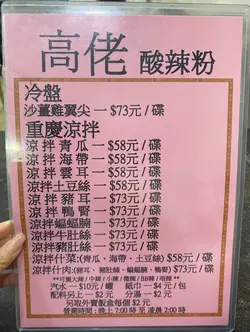 高佬 酸辣粉
冷盤
沙薑雞翼尖 — $73元 / 碟
重慶涼拌
涼拌青瓜 — $58元 / 碟
涼拌海帶 — $58元 / 碟
涼拌雲耳 — $58元 / 碟
涼拌土豆絲 — $58元 / 碟
涼拌豬耳 — $73元 / 碟
涼拌鴨腎 — $73元 / 碟
涼拌蝙蝠腩 — $73元 / 碟
涼拌牛肚絲 — $73元 / 碟
涼拌豬肚絲 — $73元 / 碟
涼拌什菜:(青瓜、海帶、土豆絲) — $58元 / 碟
涼拌什肉:(豬耳、豬肚絲、蝙蝠腩、鴨腎) $73元 / 碟
汽水 — $10元 / 罐 紙巾 — $4元 / 包
配料另上 — $2 元 分湯 — $2 元
另取外賣飯盒每個 $2 元
營業時間 : 晚上 7:00時 至 凌晨 2:00時